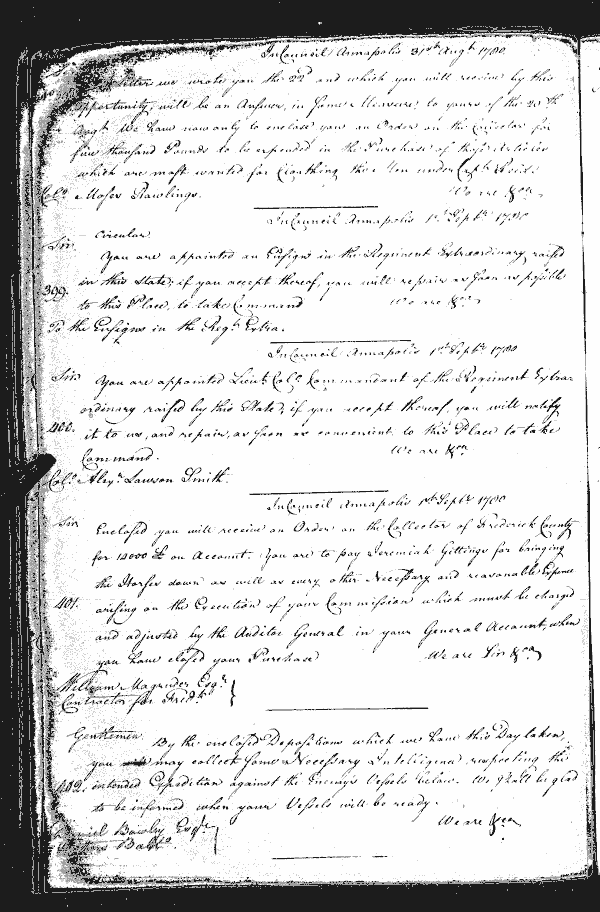 In Council Annapolis 31st Augt 1780
Letter we wrote you the 22d and which you will receive by this
opportunity, will be an Answer, in some Measure to yours of the 20th
Augt We have now only to enclose you an Order on the Collector for
five thousand Pounds to be expended in the Purchase of those Articles
which are most wanted for Cloathing the Men under Capt.
We are &ca
Colo Moses Rawlings.
In Council Annapolis 1st Septr 1780
Circular
Sir
You are appointed an Ensign in the Regiment Extraordinary raised
in this State, if you accept thereof, you will repair as soon as possible
399.
to this Place, to take Command We are &ca
To the Ensigns in the Regt Extra.
In Council Annapolis 1st Septr 1780
Sir
You are appointed Lieut Colo Commandant of the Regiment Extra-
ordinary raised by this State, if you accept thereof, you will notify
400.
it to us, and repair, as soon as convenient, to this Place to take
Command. We are &ca
Colo Alexr Lawson Smith.
In Council Annapolis 1st Septr 1780
Sir
Enclosed you will receive an Order on the Collector of Frederick County
for 12000 £ on Account. You are to pay Jeremiah Gittings for bringing
the Horses down as well as every other Necessary and reasonable Expence
401.
arising on the Execution of your Commission which must be charged
and adjusted by the Auditor General in your General Account, when
you have closed your Purchase We are Sir &ca
William Magruder Esqr
Contractor for Fredk
Gentlemen
By the enclosed Depositions which we have this Day taken,
you may collect some Necessary Intelligence respecting the
402.
intended Expedition against the Enemy's Vessels below. We shall be glad
to be informed when your Vessels will be ready.
We are &ca
Bowly Esqr
others Balto